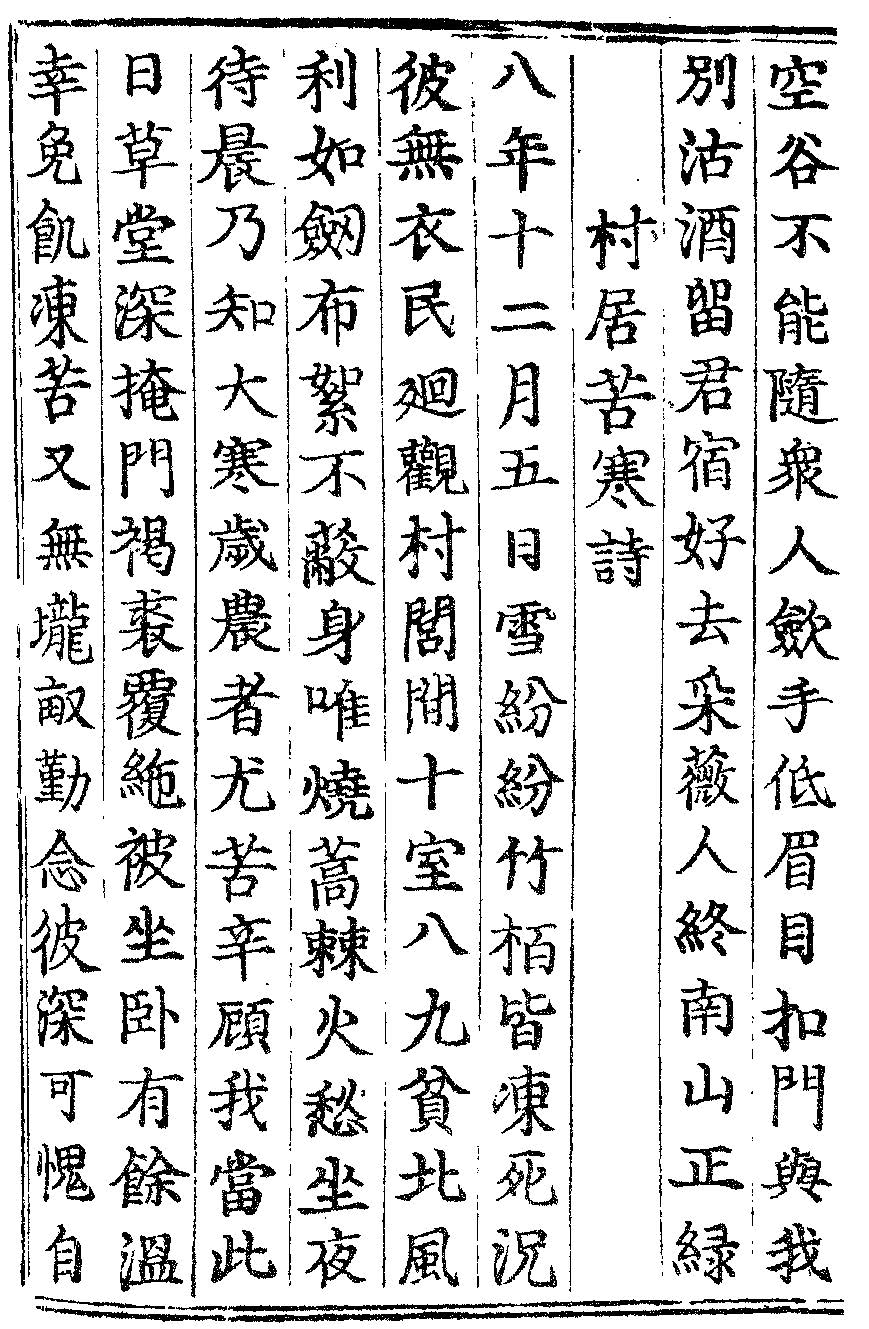 空谷不能隨衆人歛手低眉目扣門與我
別沽酒留君宿好去采薇人終南山正緑
村居苦寒詩
八年十二月五日雪紛紛竹栢皆凍死況
彼無衣民廻觀村閭間十室八九貧北風
利如劒布絮不蔽身唯燒蒿棘火愁坐夜
待晨乃知大寒歳農者尤苦辛顧我當此
日草堂深掩門褐裘覆絁被坐卧有餘溫
幸免飢凍苦又無壠畝勤念彼深可愧自